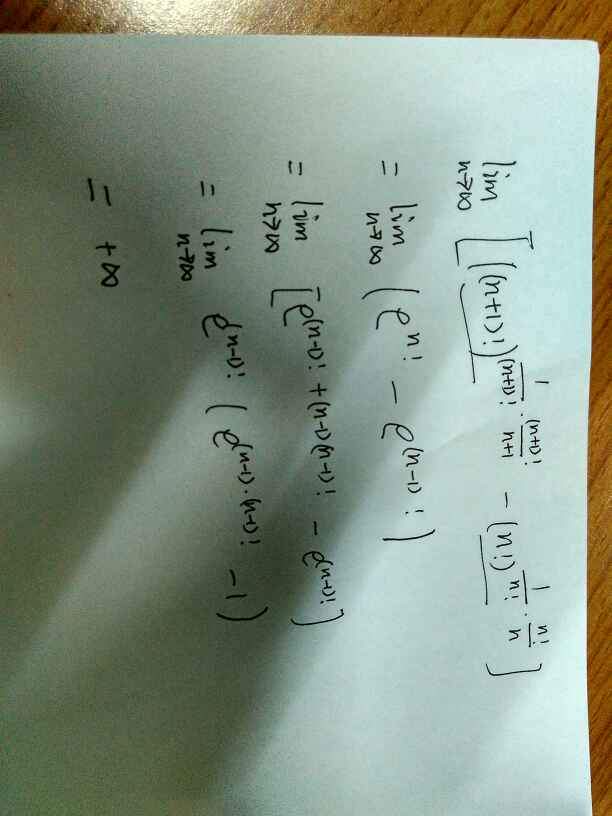 lim n→∞ [[(n+1)!]^{1/(n+1)! · (n+1)!/(n+1)} − (n!)^{1/n! · n!/n}]
= lim n→∞ (e^{n!} − e^{(n-1)!})
= lim n→∞ [e^{(n-1)!+(n-1)(n-1)!} − e^{(n-1)!}]
= lim n→∞ e^{(n-1)!} (e^{(n-1)·(n-1)!} − 1)
= +∞